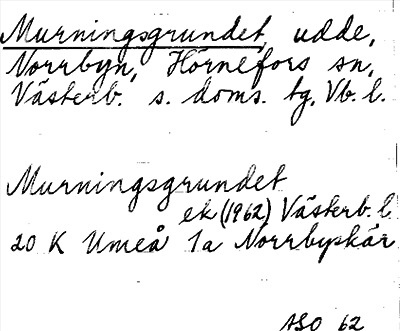 Murningsgrundet, udde,
Norrbyn, Hörnefors sn,
Västerb. s. doms. tg, Vb. l.
Murningsgrundet
ek (1962) Västerb. l
20 K Umeå 1a Norrbyskär
ASO 62